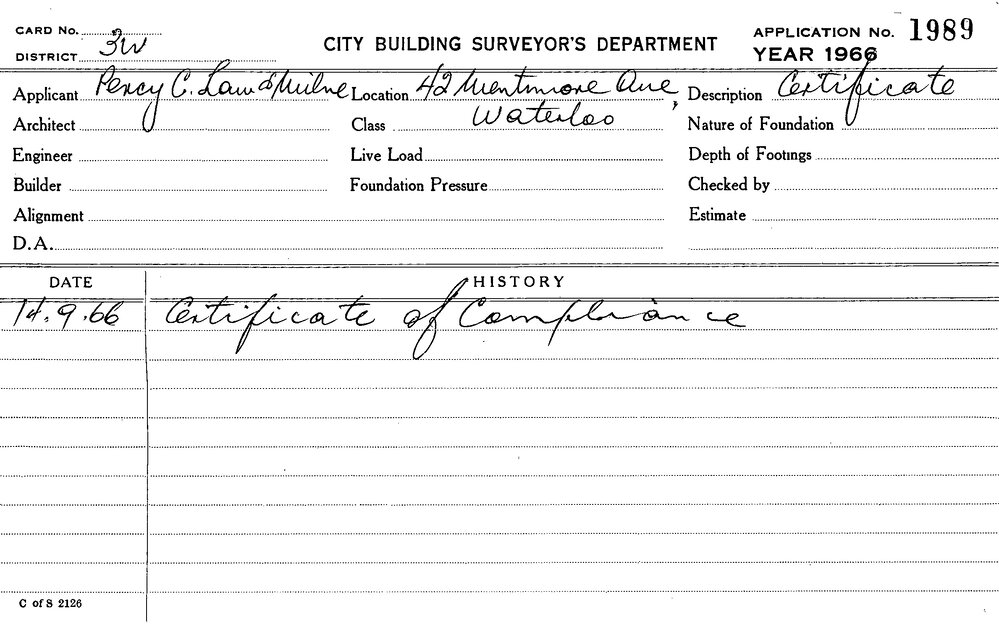 CARD No.
DISTRICT 3W
CITY BUILDING SURVEYOR'S DEPARTMENT
APPLICATION No. 1989
YEAR 1966
Applicant Percy C. Law & Milne Location 42 Mentmore Ave, Description Certificate
Architect Class Waterloo Nature of Foundation
Engineer Live Load Depth of Footings
Builder Foundation Pressure Checked by
Alignment Estimate
D.A.
DATE HISTORY
14.9.66 Certificate of Compliance
C of S 2126